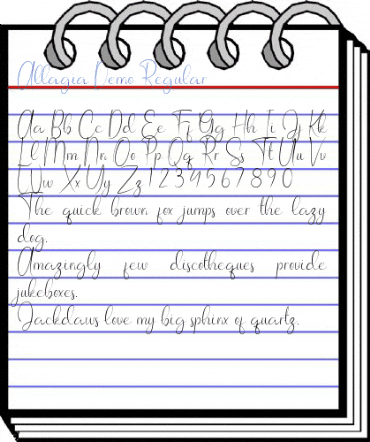 Allagia Demo Regular
Aa Bb Cc Dd Ee Ff Gg Hh Ii Jj Kk
Ll Mm Nn Oo Pp Qq Rr Ss Tt Uu Vv
Ww Xx Yy Zz 1 2 3 4 5 6 7 8 9 0
The quick brown fox jumps over the lazy
dog.
Amazingly few discotheques provide
jukeboxes.
Jackdaws love my big sphinx of quartz.